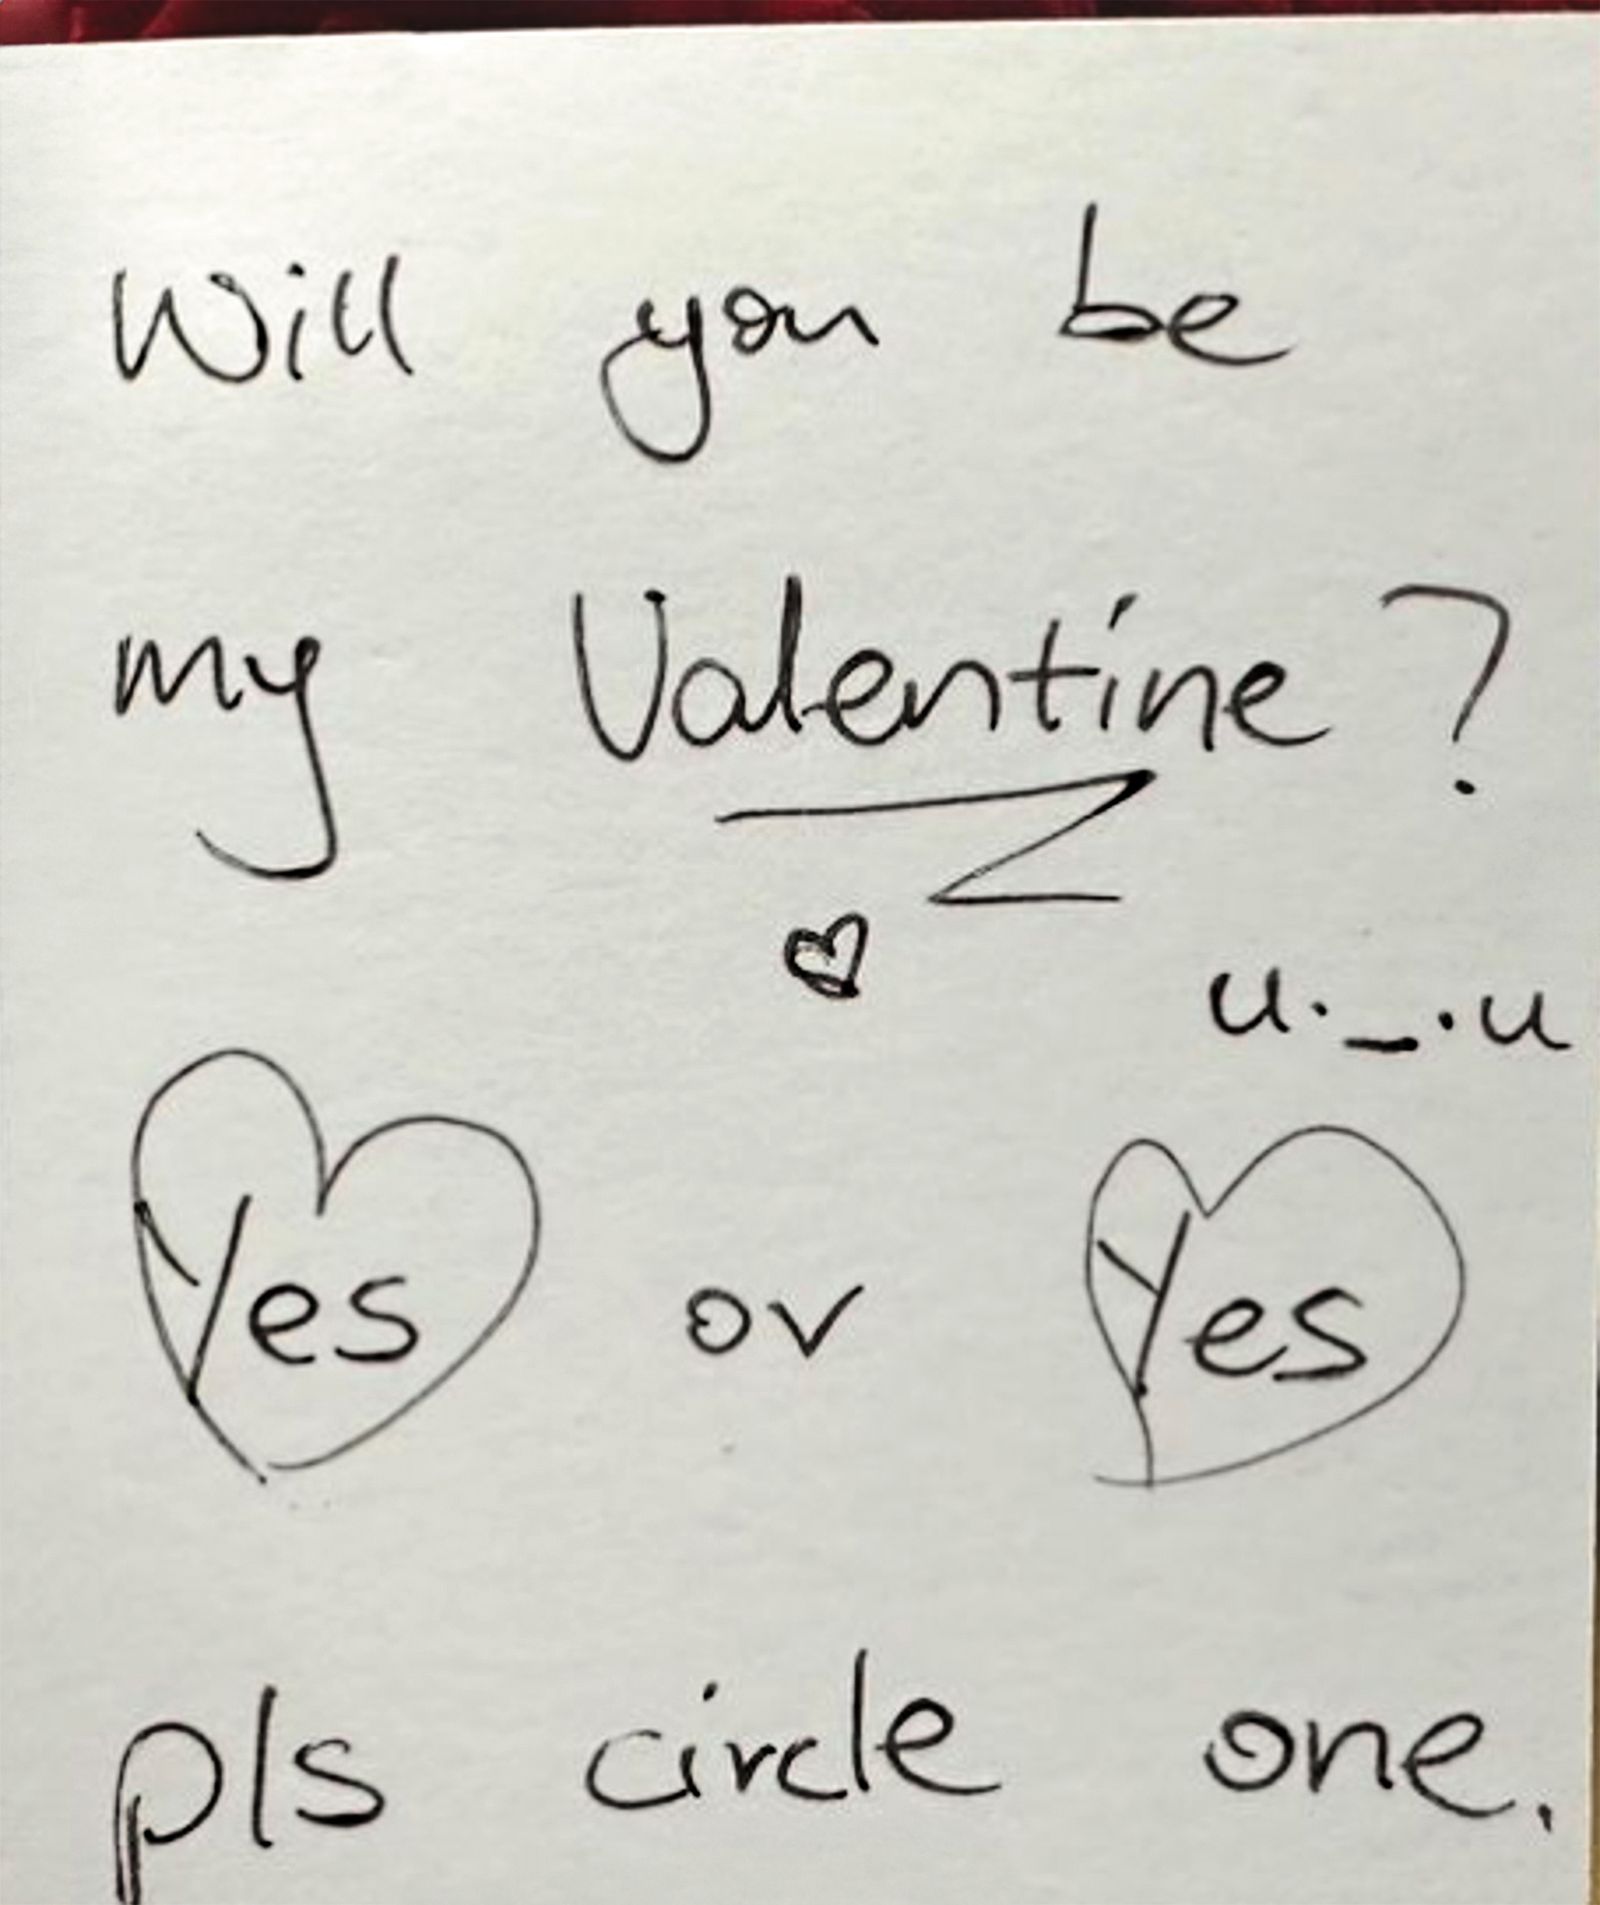 Will you be
my Valentine?
u._.u
Yes or Yes
pls circle one.